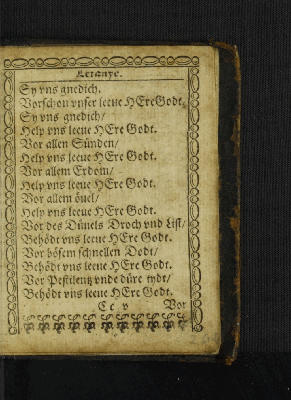 Letanye.
Sy vns gnedich.
Vorschon vnser leeue HEre Godt.
Sy vns gnedich/
Help vns leeue HEre Godt.
Vor allen Sünden/
Help vns leeue HEre Godt.
Vor allem Erdom/
Help vns leeue HEre Godt.
Vor allem övel/
Help vns leeue HEre Godt.
Vor des Düuels Droch vnd List/
Behödt vns leeue HEre Godt.
Vor bösem schnellen Dodt/
Behödt vns leeue HEre Godt.
Vor Pestilentz vnde düre tydt/
Behödt vns leeue HEre Godt.
Ee v Vor